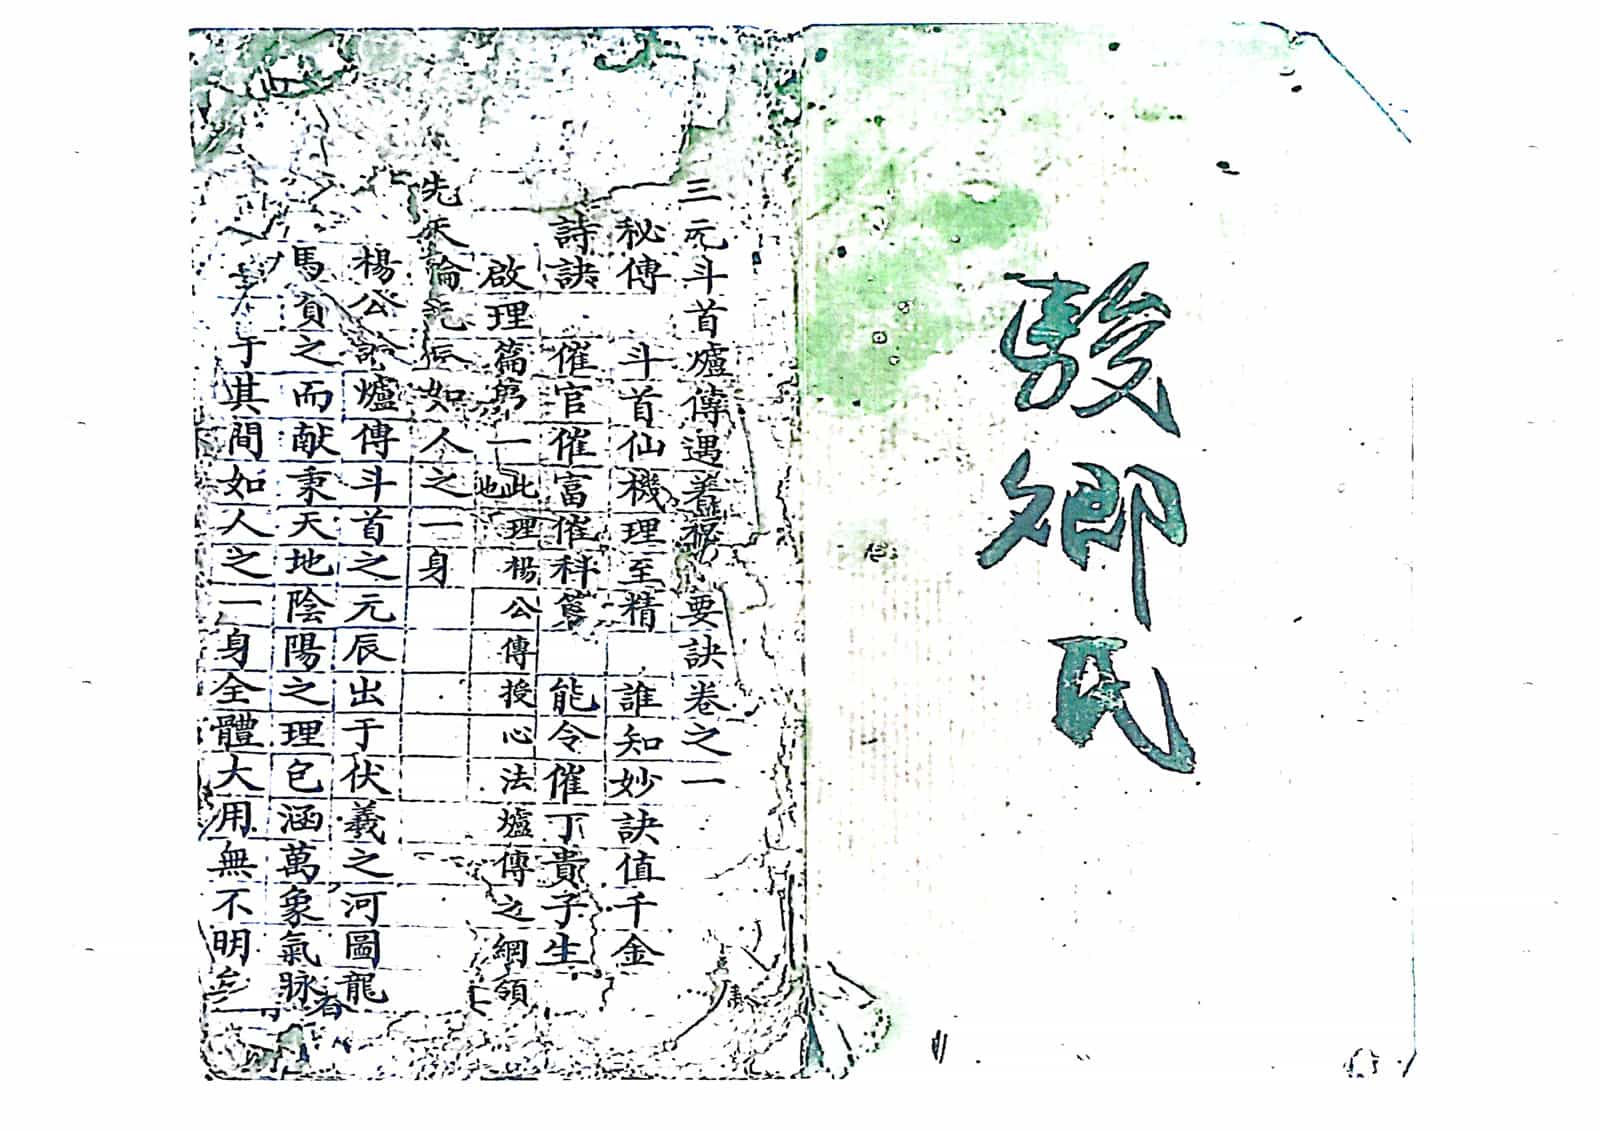 駿卿氏
三元斗首爐傳遇着福要訣卷之一
秘傳 斗首仙機理至精 誰知妙訣值千金
詩訣 催官催富催科 能令催丁貴子生
啟理篇第一此理楊公傳授心法爐傳之綱領也
先 論元辰如人之一身
楊公 爐傳斗首之元辰出于伏羲之河圖龍
馬負之而献秉天地陰陽之理包涵萬象氣脉
于其間如人之一身全體大用無不明